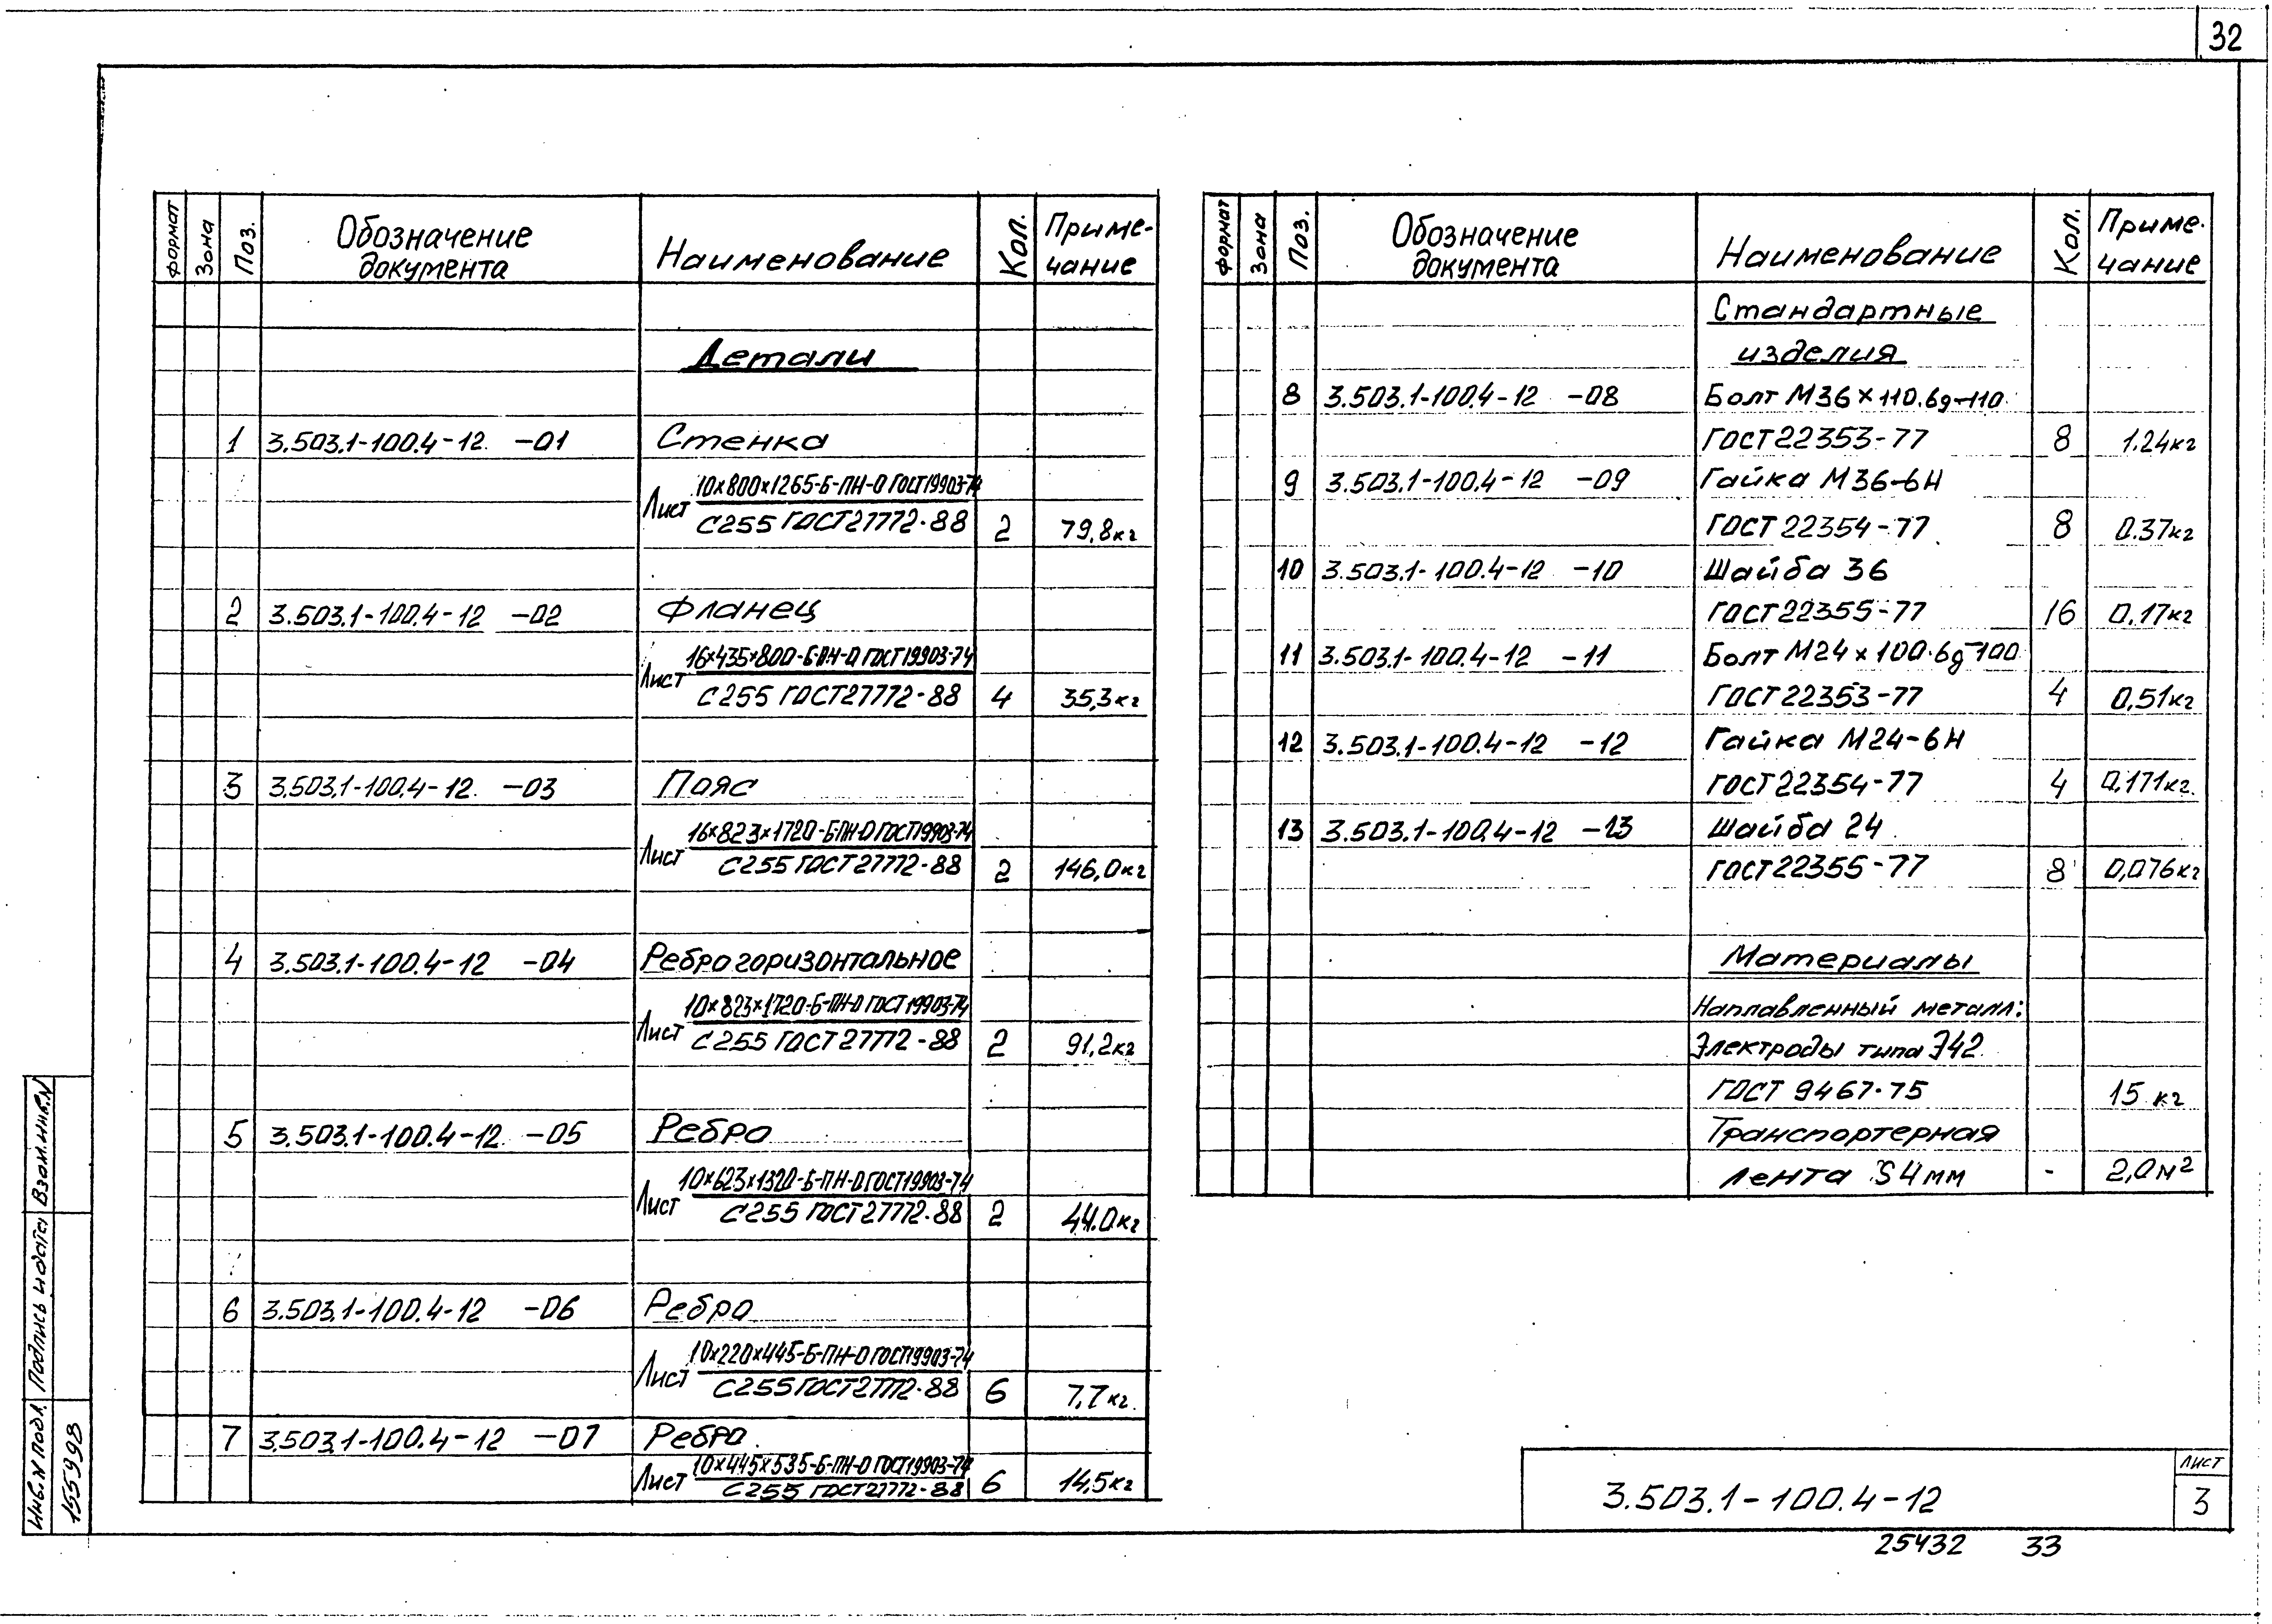 32
Формат
Зона
Поз.
Обозначение
документа
Наименование
Кол.
Приме-
чание
Детали
1 3.503.1-100.4-12 -01 Стенка
10×800×1265-Б-ПН-О ГОСТ19903-74
Лист
С255 ГОСТ27772-88 2 79,8кг
2 3.503.1-100.4-12 -02 Фланец
16×435×800-Б-ПН-О ГОСТ19903-74
Лист
С255 ГОСТ27772-88 4 35,3кг
3 3.503.1-100.4-12 -03 Пояс
16×823×1720-Б-ПН-О ГОСТ19903-74
Лист
С255 ГОСТ27772-88 2 146,0кг
4 3.503.1-100.4-12 -04 Ребро горизонтальное
10×823×1720-Б-ПН-О ГОСТ19903-74
Лист
С255 ГОСТ27772-88 2 91,2кг
5 3.503.1-100.4-12 -05 Ребро
10×623×1320-Б-ПН-О ГОСТ19903-74
Лист
С255 ГОСТ27772-88 2 44.0кг
6 3.503.1-100.4-12 -06 Ребро
10×220×445-Б-ПН-О ГОСТ19903-74
Лист
С255 ГОСТ27772-88 6 7,7кг.
7 3.503.1-100.4-12 -07 Ребро
10×445×535-Б-ПН-О ГОСТ19903-74
Лист
С255 ГОСТ27772-88 6 14,5кг
Формат
Зона
Поз.
Обозначение
документа
Наименование
Кол.
Приме-
чание
Стандартные
изделия
8 3.503.1-100.4-12 -08 Болт М36×110.6g-110
ГОСТ22353-77 8 1.24кг
9 3.503.1-100.4-12 -09 Гайка М36-6Н
ГОСТ 22354-77 8 0.37кг
10 3.503.1-100.4-12 -10 Шайба 36
ГОСТ22355-77 16 0.17кг
11 3.503.1-100.4-12 -11 Болт М24×100.6g-100
ГОСТ22353-77 4 0,51кг
12 3.503.1-100.4-12 -12 Гайка М24-6Н
ГОСТ22354-77 4 0,171кг.
13 3.503.1-100.4-12 -13 Шайба 24
ГОСТ22355-77 8 0,076кг
Материалы
Наплавленный металл:
Электроды типа Э42
ГОСТ 9467-75 15 кг
Транспортерная
лента S 4мм - 2,0м²
Инв.N подл. Подпись и дата Взам.инв.N
155998
3.503.1-100.4-12
лист
3
25432 33